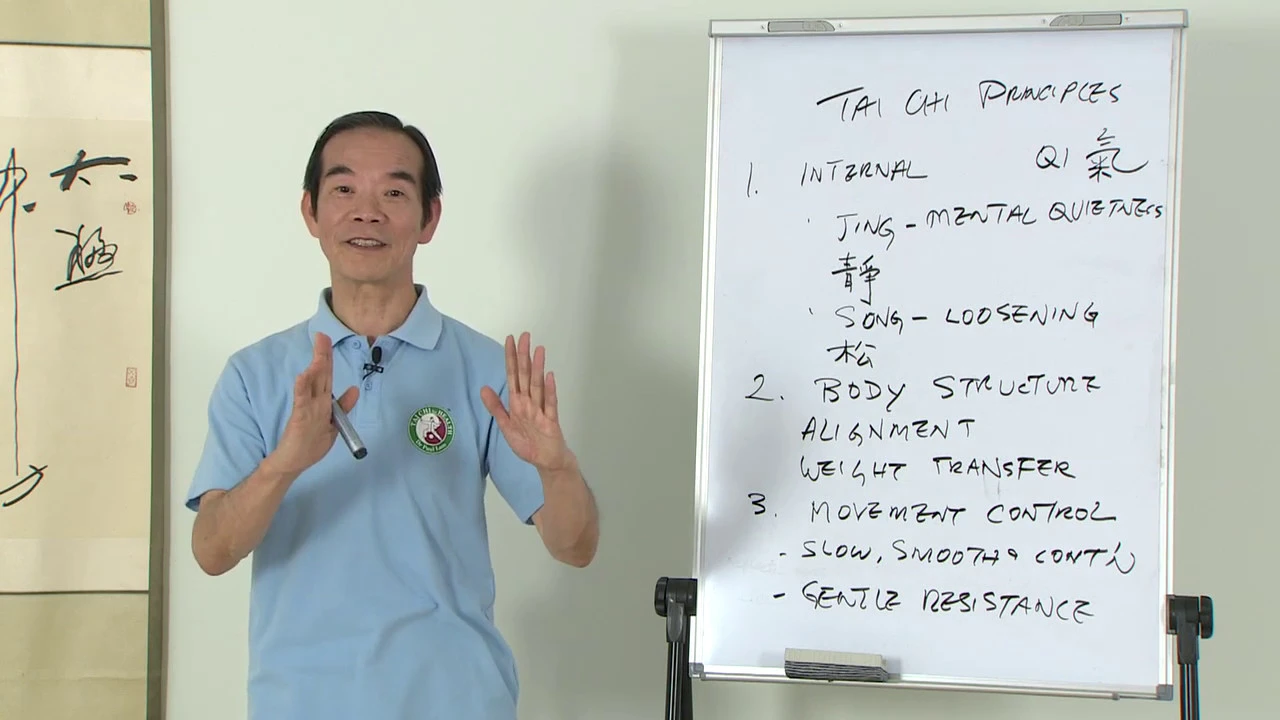 太
極
TAI CHI PRINCIPLES
1. INTERNAL QI 氣
· JING – MENTAL QUIETNESS
靜
· SONG – LOOSENING
松
2. BODY STRUCTURE
ALIGNMENT
WEIGHT TRANSFER
3. MOVEMENT CONTROL
- SLOW, SMOOTH & CONT'N
- GENTLE RESISTANCE
TAI CHI for HEALTH
Dr Paul Lam